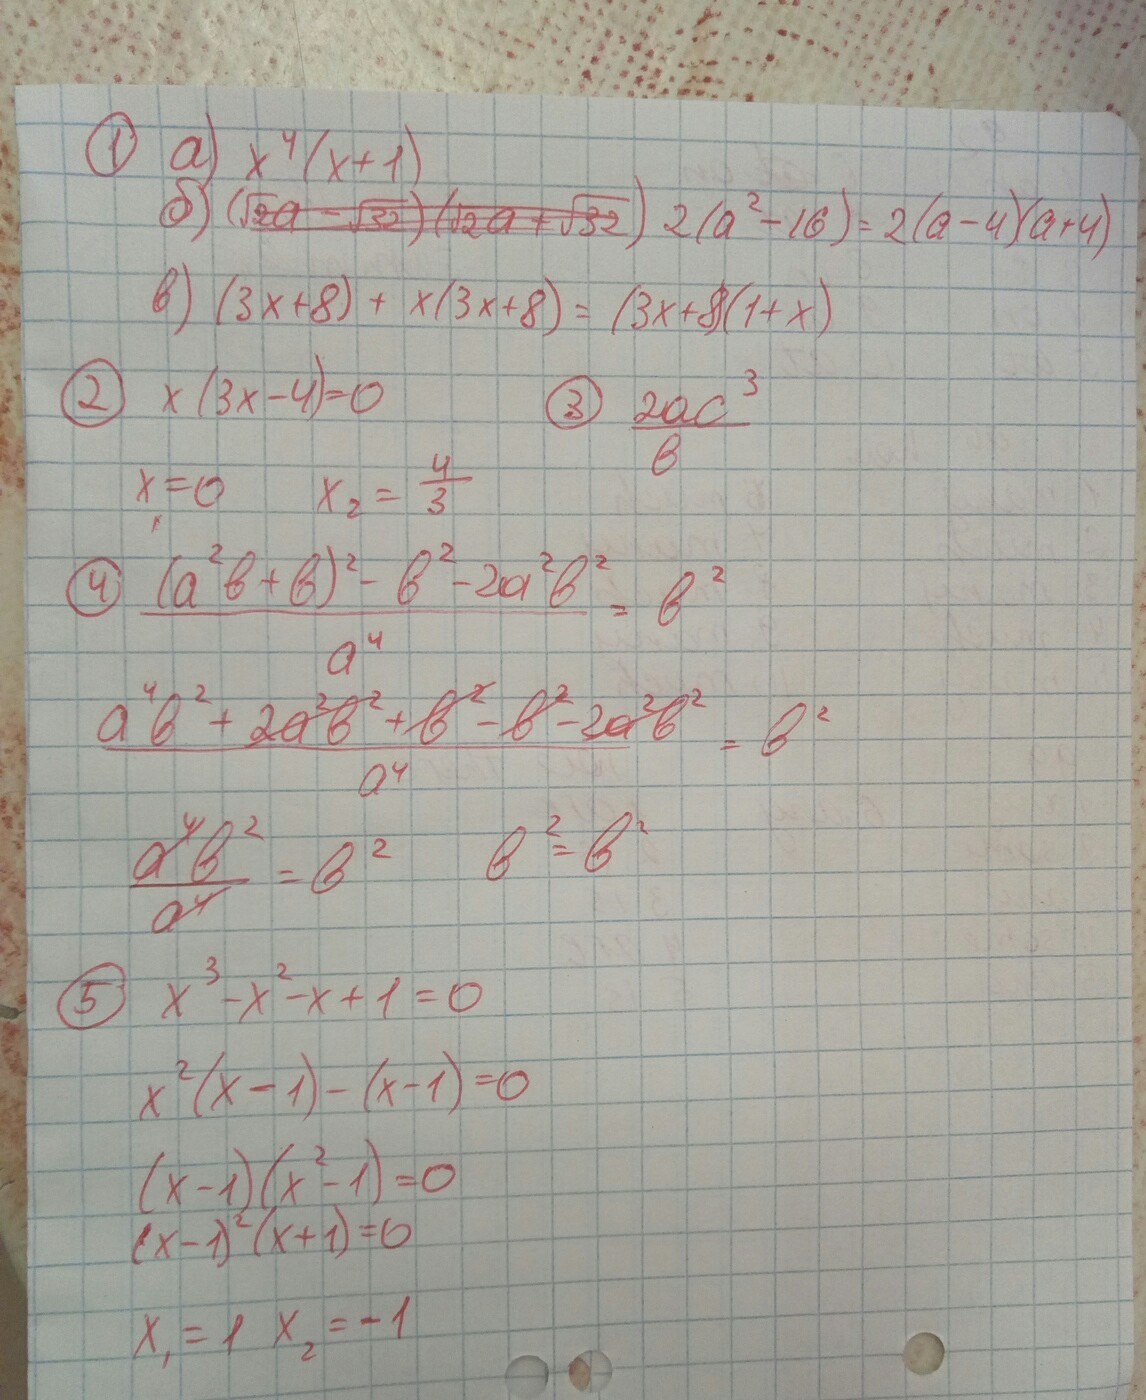 ① а) x⁴(x+1)
б) (√2a − √32)(√2a + √32) 2(a²−16)=2(a−4)(a+4)
в) (3x+8) + x(3x+8) = (3x+8)(1+x)
② x(3x−4)=0 ③ 2ac³/b
x=0 x₂ = 4/3
④ ((a²b+b)² − b² − 2a²b²)/a⁴ = b²
(a⁴b² + 2a²b² + b² − b² − 2a²b²)/a⁴ = b²
a⁴b²/a⁴ = b² b² = b²
⑤ x³−x²−x+1=0
x²(x−1)−(x−1)=0
(x−1)(x²−1)=0
(x−1)²(x+1)=0
x₁=1 x₂=−1